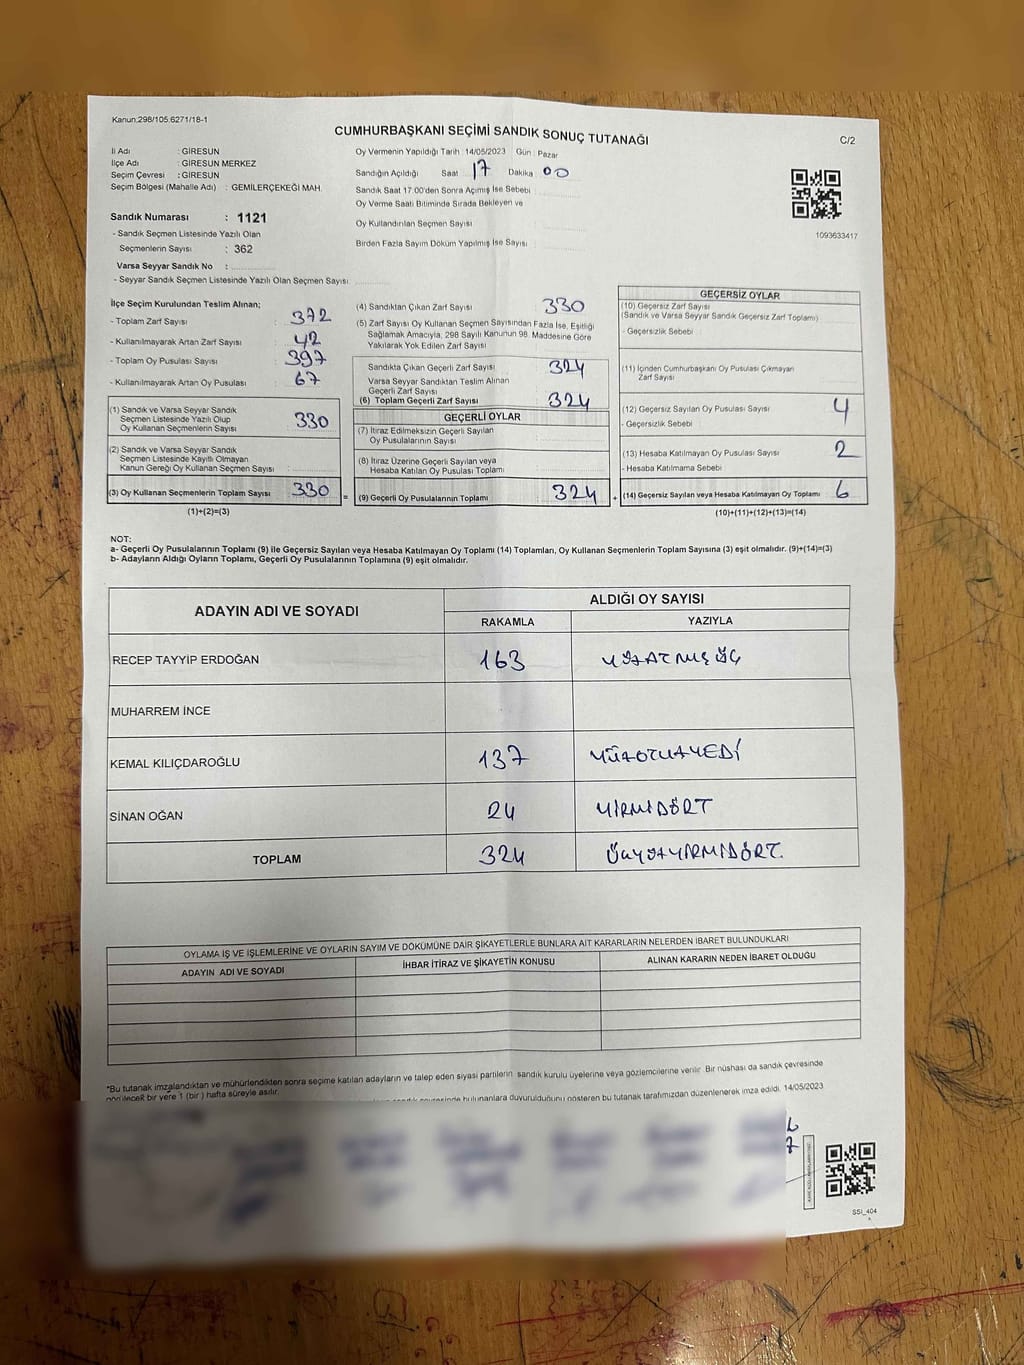 Kanun:298/105,6271/18-1
CUMHURBAŞKANI SEÇİMİ SANDIK SONUÇ TUTANAĞI
C/2
İl Adı : GİRESUN
İlçe Adı : GİRESUN MERKEZ
Seçim Çevresi : GİRESUN
Seçim Bölgesi (Mahalle Adı) : GEMİLERÇEKEĞİ MAH.
Sandık Numarası : 1121
- Sandık Seçmen Listesinde Yazılı Olan
Seçmenlerin Sayısı : 362
Varsa Seyyar Sandık No :
- Seyyar Sandık Seçmen Listesinde Yazılı Olan Seçmen Sayısı:
Oy Vermenin Yapıldığı Tarih :14/05/2023 Gün : Pazar
Sandığın Açıldığı Saat 17 Dakika 00
Sandık Saat 17:00'den Sonra Açımış İse Sebebi :
Oy Verme Saati Bitiminde Sırada Bekleyen ve
Oy Kullandırılan Seçmen Sayısı :
Birden Fazla Sayım Döküm Yapılmış İse Sayısı :
1093633417
İlçe Seçim Kurulundan Teslim Alınan;
- Toplam Zarf Sayısı : 372
- Kullanılmayarak Artan Zarf Sayısı : 42
- Toplam Oy Pusulası Sayısı : 397
- Kullanılmayarak Artan Oy Pusulası : 67
(1) Sandık ve Varsa Seyyar Sandık
Seçmen Listesinde Yazılı Olup
Oy Kullanan Seçmenlerin Sayısı : 330
(2) Sandık ve Varsa Seyyar Sandık
Seçmen Listesinde Kayıtlı Olmayan
Kanun Gereği Oy Kullanan Seçmen Sayısı :
(3) Oy Kullanan Seçmenlerin Toplam Sayısı : 330 =
(1)+(2)=(3)
(4) Sandıktan Çıkan Zarf Sayısı : 330
(5) Zarf Sayısı Oy Kullanan Seçmen Sayısından Fazla İse, Eşitliği
Sağlamak Amacıyla, 298 Sayılı Kanunun 98. Maddesine Göre
Yakılarak Yok Edilen Zarf Sayısı :
Sandıkta Çıkan Geçerli Zarf Sayısı : 324
Varsa Seyyar Sandıktan Teslim Alınan
Geçerli Zarf Sayısı :
(6) Toplam Geçerli Zarf Sayısı : 324
GEÇERLİ OYLAR
(7) İtiraz Edilmeksizin Geçerli Sayılan
Oy Pusulalarının Sayısı :
(8) İtiraz Üzerine Geçerli Sayılan veya
Hesaba Katılan Oy Pusulası Toplamı :
(9) Geçerli Oy Pusulalarının Toplamı : 324 +
GEÇERSİZ OYLAR
(10) Geçersiz Zarf Sayısı
(Sandık ve Varsa Seyyar Sandık Geçersiz Zarf Toplamı)
- Geçersizlik Sebebi :
(11) İçinden Cumhurbaşkanı Oy Pusulası Çıkmayan
Zarf Sayısı :
(12) Geçersiz Sayılan Oy Pusulası Sayısı : 4
- Geçersizlik Sebebi :
(13) Hesaba Katılmayan Oy Pusulası Sayısı : 2
- Hesaba Katılmama Sebebi :
(14) Geçersiz Sayılan veya Hesaba Katılmayan Oy Toplamı : 6
(10)+(11)+(12)+(13)=(14)
NOT:
a- Geçerli Oy Pusulalarının Toplamı (9) ile Geçersiz Sayılan veya Hesaba Katılmayan Oy Toplamı (14) Toplamları, Oy Kullanan Seçmenlerin Toplam Sayısına (3) eşit olmalıdır. (9)+(14)=(3)
b- Adayların Aldığı Oyların Toplamı, Geçerli Oy Pusulalarının Toplamına (9) eşit olmalıdır.
ADAYIN ADI VE SOYADI
ALDIĞI OY SAYISI
RAKAMLA YAZIYLA
RECEP TAYYİP ERDOĞAN 163 YÜZATMIŞ ÜÇ
MUHARREM İNCE
KEMAL KILIÇDAROĞLU 137 YÜZOTUZYEDİ
SİNAN OĞAN 24 YİRMİDÖRT
TOPLAM 324 ÜÇYÜZYİRMİDÖRT.
OYLAMA İŞ VE İŞLEMLERİNE VE OYLARIN SAYIM VE DÖKÜMÜNE DAİR ŞİKAYETLERLE BUNLARA AİT KARARLARIN NELERDEN İBARET BULUNDUKLARI
ADAYIN ADI VE SOYADI İHBAR İTİRAZ VE ŞİKAYETİN KONUSU ALINAN KARARIN NEDEN İBARET OLDUĞU
*Bu tutanak imzalandıktan ve mühürlendikten sonra seçime katılan adayların ve talep eden siyasi partilerin sandık kurulu üyelerine veya gözlemcilerine verilir. Bir nüshası da sandık çevresinde
görüleceR bir yere 1 (bir ) hafta süreyle asılır.
bulunanlara duyurulduğunu gösteren bu tutanak tarafımızdan düzenlenerek imza edildi. 14/05/2023
SSI_404